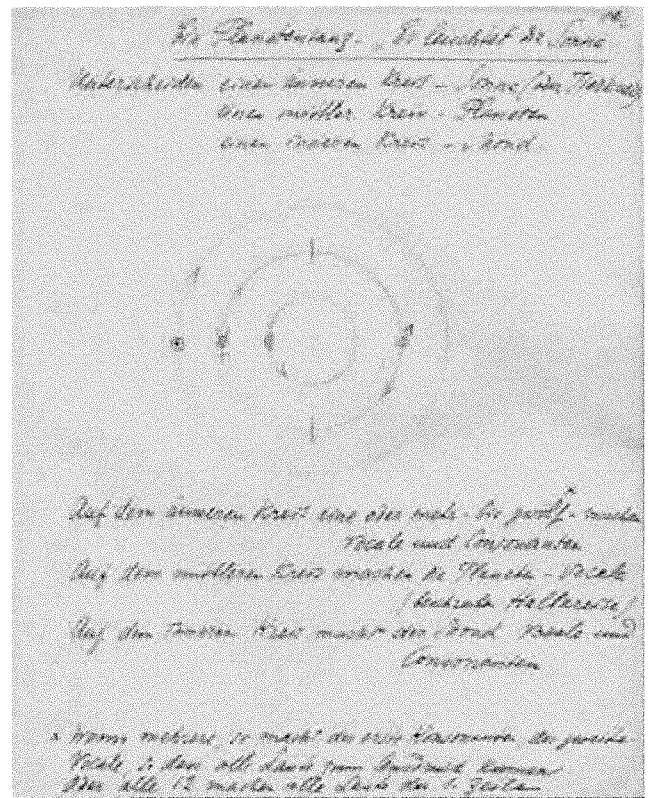 Der Planetentanz. „Es leuchtet die Sonne"
Unterscheiden einen äusseren Kreis – Sonne/den Tierkreis
einen mittler. Kreis – Planeten
einen inneren Kreis – Mond.
Auf dem äusseren Kreis eine oder mehr – bis zwölf x – machen
Vocale und Consonanten
Auf dem mittleren Kreis machen die Planeten – Vocale
Auf dem inneren Kreis macht der Mond Vocale und
Consonanten
x Wenn mehrere, so macht der erste Konsonanten der zweite
Vocale, so dass alle Laute zum Ausdruck kommen
Oder alle 12 machen alle Laute der 1. Zeile